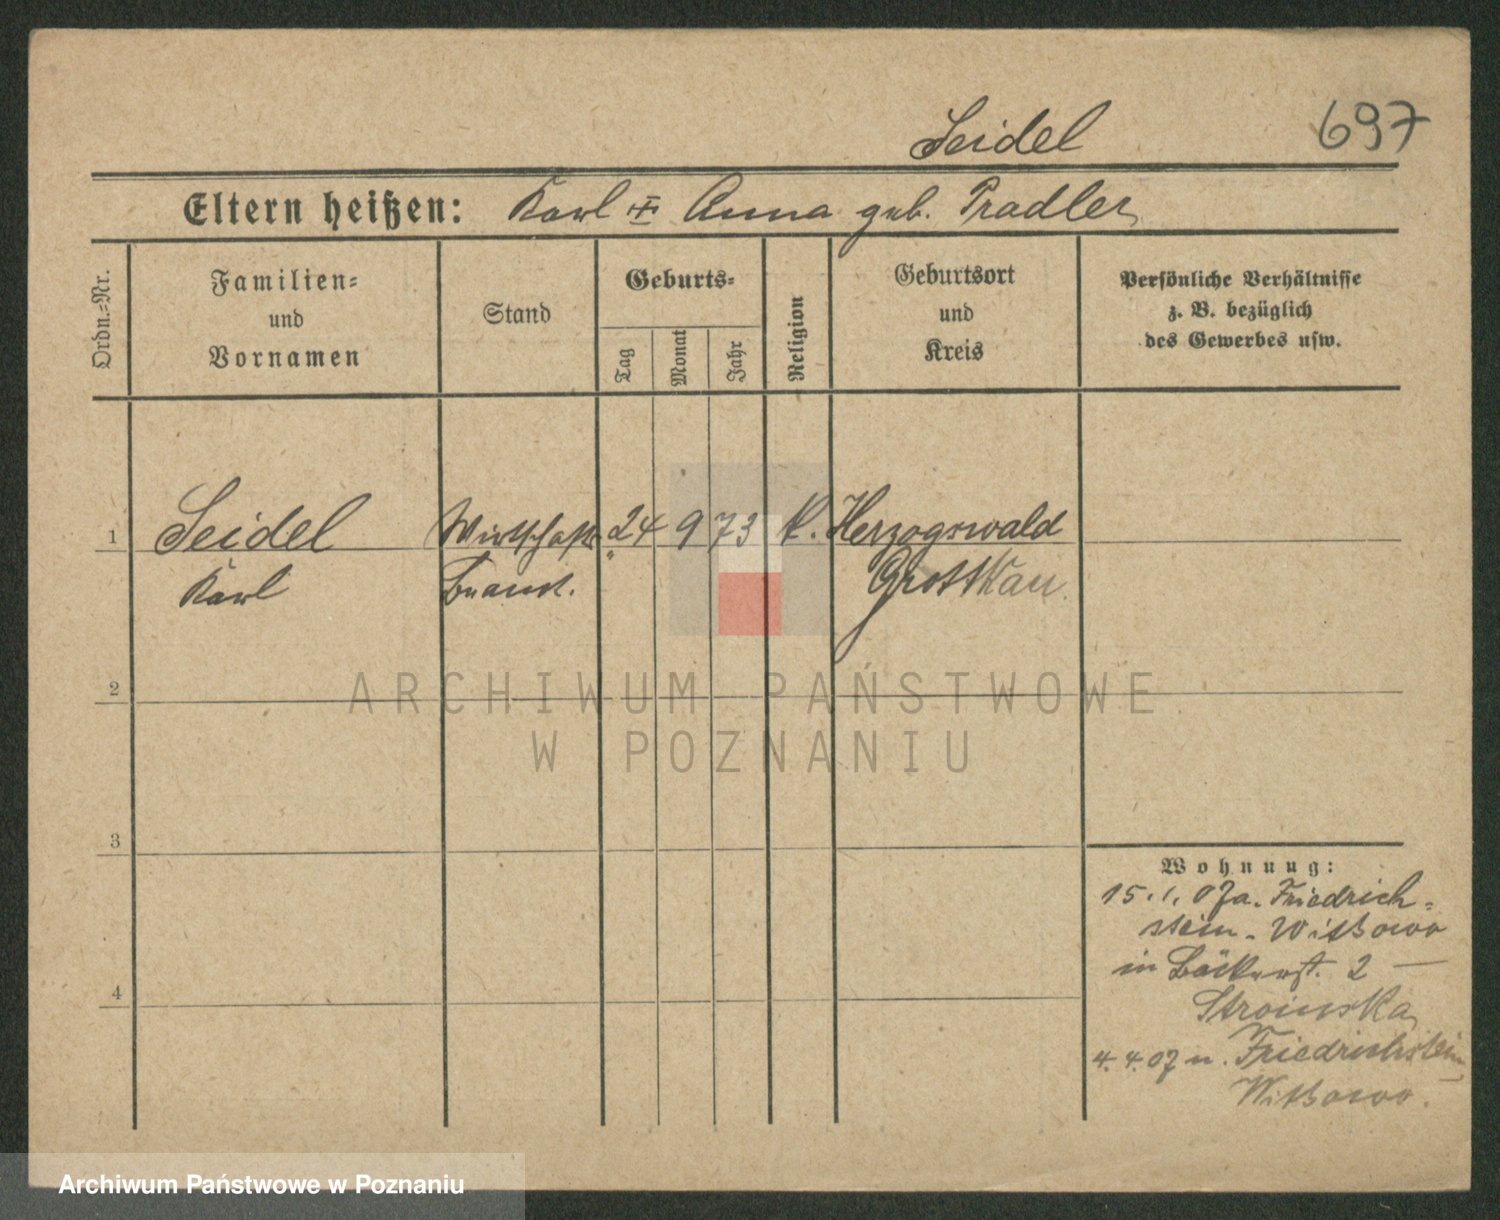 Seidel 697
Eltern heißen: Karl Anna geb. Pradler
Ordn.-Nr.
Familien-
und
Vornamen
Stand
Geburts-
Tag
Monat
Jahr
Religion
Geburtsort
und
Kreis
Persönliche Verhältnisse
z. B. bezüglich
des Gewerbes usw.
1 Seidel Wirtschafts 24 9 73 k. Herzogswald
Karl Beamt. Grottkau
2
3
4
Wohnung:
15. 1. 07 a. Friedrich-
stein-Witkowo
in Bäckerst. 2 —
Stroinska
4. 4. 07 n. Friedrichstein
Witkowo.
ARCHIWUM PAŃSTWOWE
W POZNANIU
Archiwum Państwowe w Poznaniu